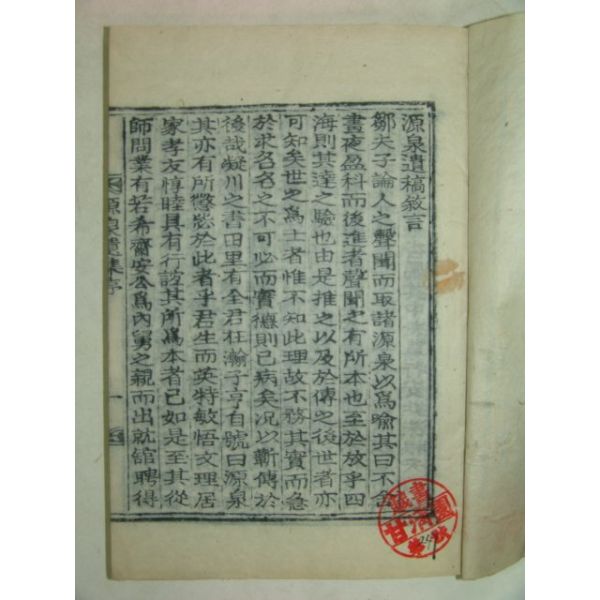 源泉遺稿敘言
鄒夫子論人之聲聞而取諸源泉以爲喻其曰不舍
晝夜盈科而後進者聲聞之有所本也至於放乎四
海則其達之驗也由是推之以及於傳之後世者亦
可知矣世之爲士者惟不知此理故不務其實而急
於求名名之不可必而實德則已病矣況以蘄傳於
後哉凝川之書田里有全君在瀚子亨自號曰源泉
其亦有所懲毖於此者乎君生而英特敏悟文理居
家孝友惇睦具有行誼其所爲本者已如是至其從
師問業有若希齋安公爲內舅之親而出就舘聘得
源泉遺集序
一